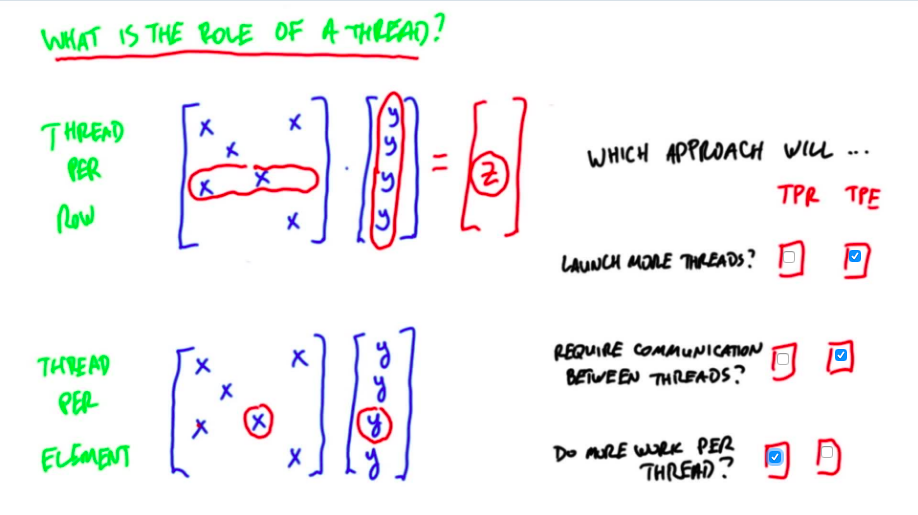 WHAT IS THE ROLE OF A THREAD?
THREAD
PER
ROW
x x
x
x x
x
·
y
y
y
y
=
z
THREAD
PER
ELEMENT
x x
x
x x
x
y
y
y
y
WHICH APPROACH WILL ...
TPR TPE
LAUNCH MORE THREADS?
REQUIRE COMMUNICATION
BETWEEN THREADS?
DO MORE WORK PER
THREAD?